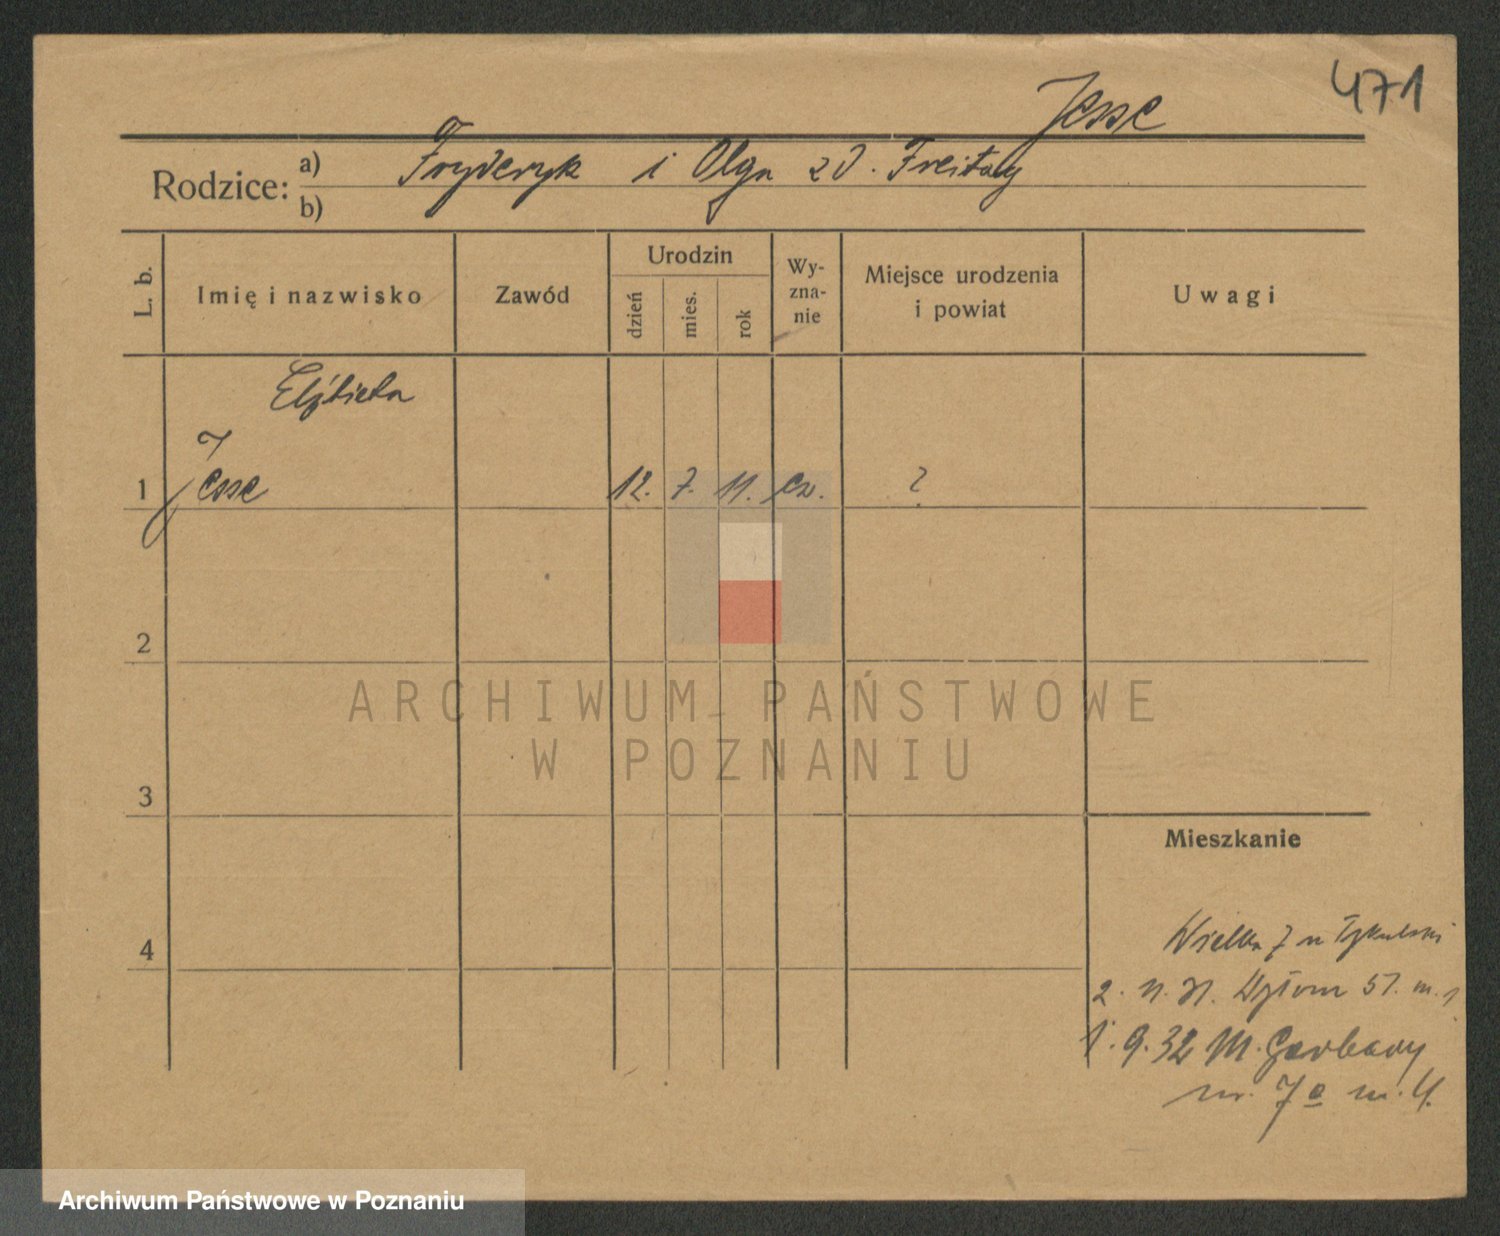 471
Jesse
Rodzice:
a) Fryderyk i Olga zd. Freitag
b)
L. b.
Imię i nazwisko
Zawód
Urodzin
dzień
mies.
rok
Wy-
zna-
nie
Miejsce urodzenia
i powiat
Uwagi
Elżbieta
1 Jesse 12. 7. 11. ew. ?
2
3
4
Mieszkanie
Wielka 7 u
2. 11. 31. Wyłom 51. m. 1
1. 9. 32 M. Garbary
nr. 7a m. 4.
ARCHIWUM PAŃSTWOWE
W POZNANIU
Archiwum Państwowe w Poznaniu